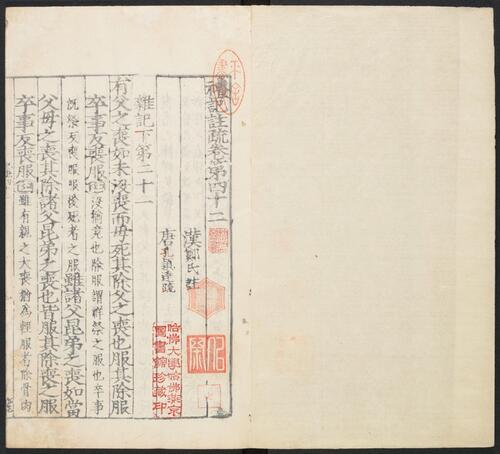 禮記註疏卷第四十二
漢鄭氏註
唐孔穎達疏
雜記下第二十一
有父之喪如未沒喪而母死其除父之喪也服其除服
卒事反喪服
沒猶竟也除服謂祥祭之服也卒事
既祭反喪服服後死者之服
雖諸父昆弟之喪如當
父母之喪其除諸父昆弟之喪也皆服其除喪之服
卒事反喪服
雖有親之大喪猶為輕服者除骨肉
哈佛大學哈佛燕京
圖書館珍藏印